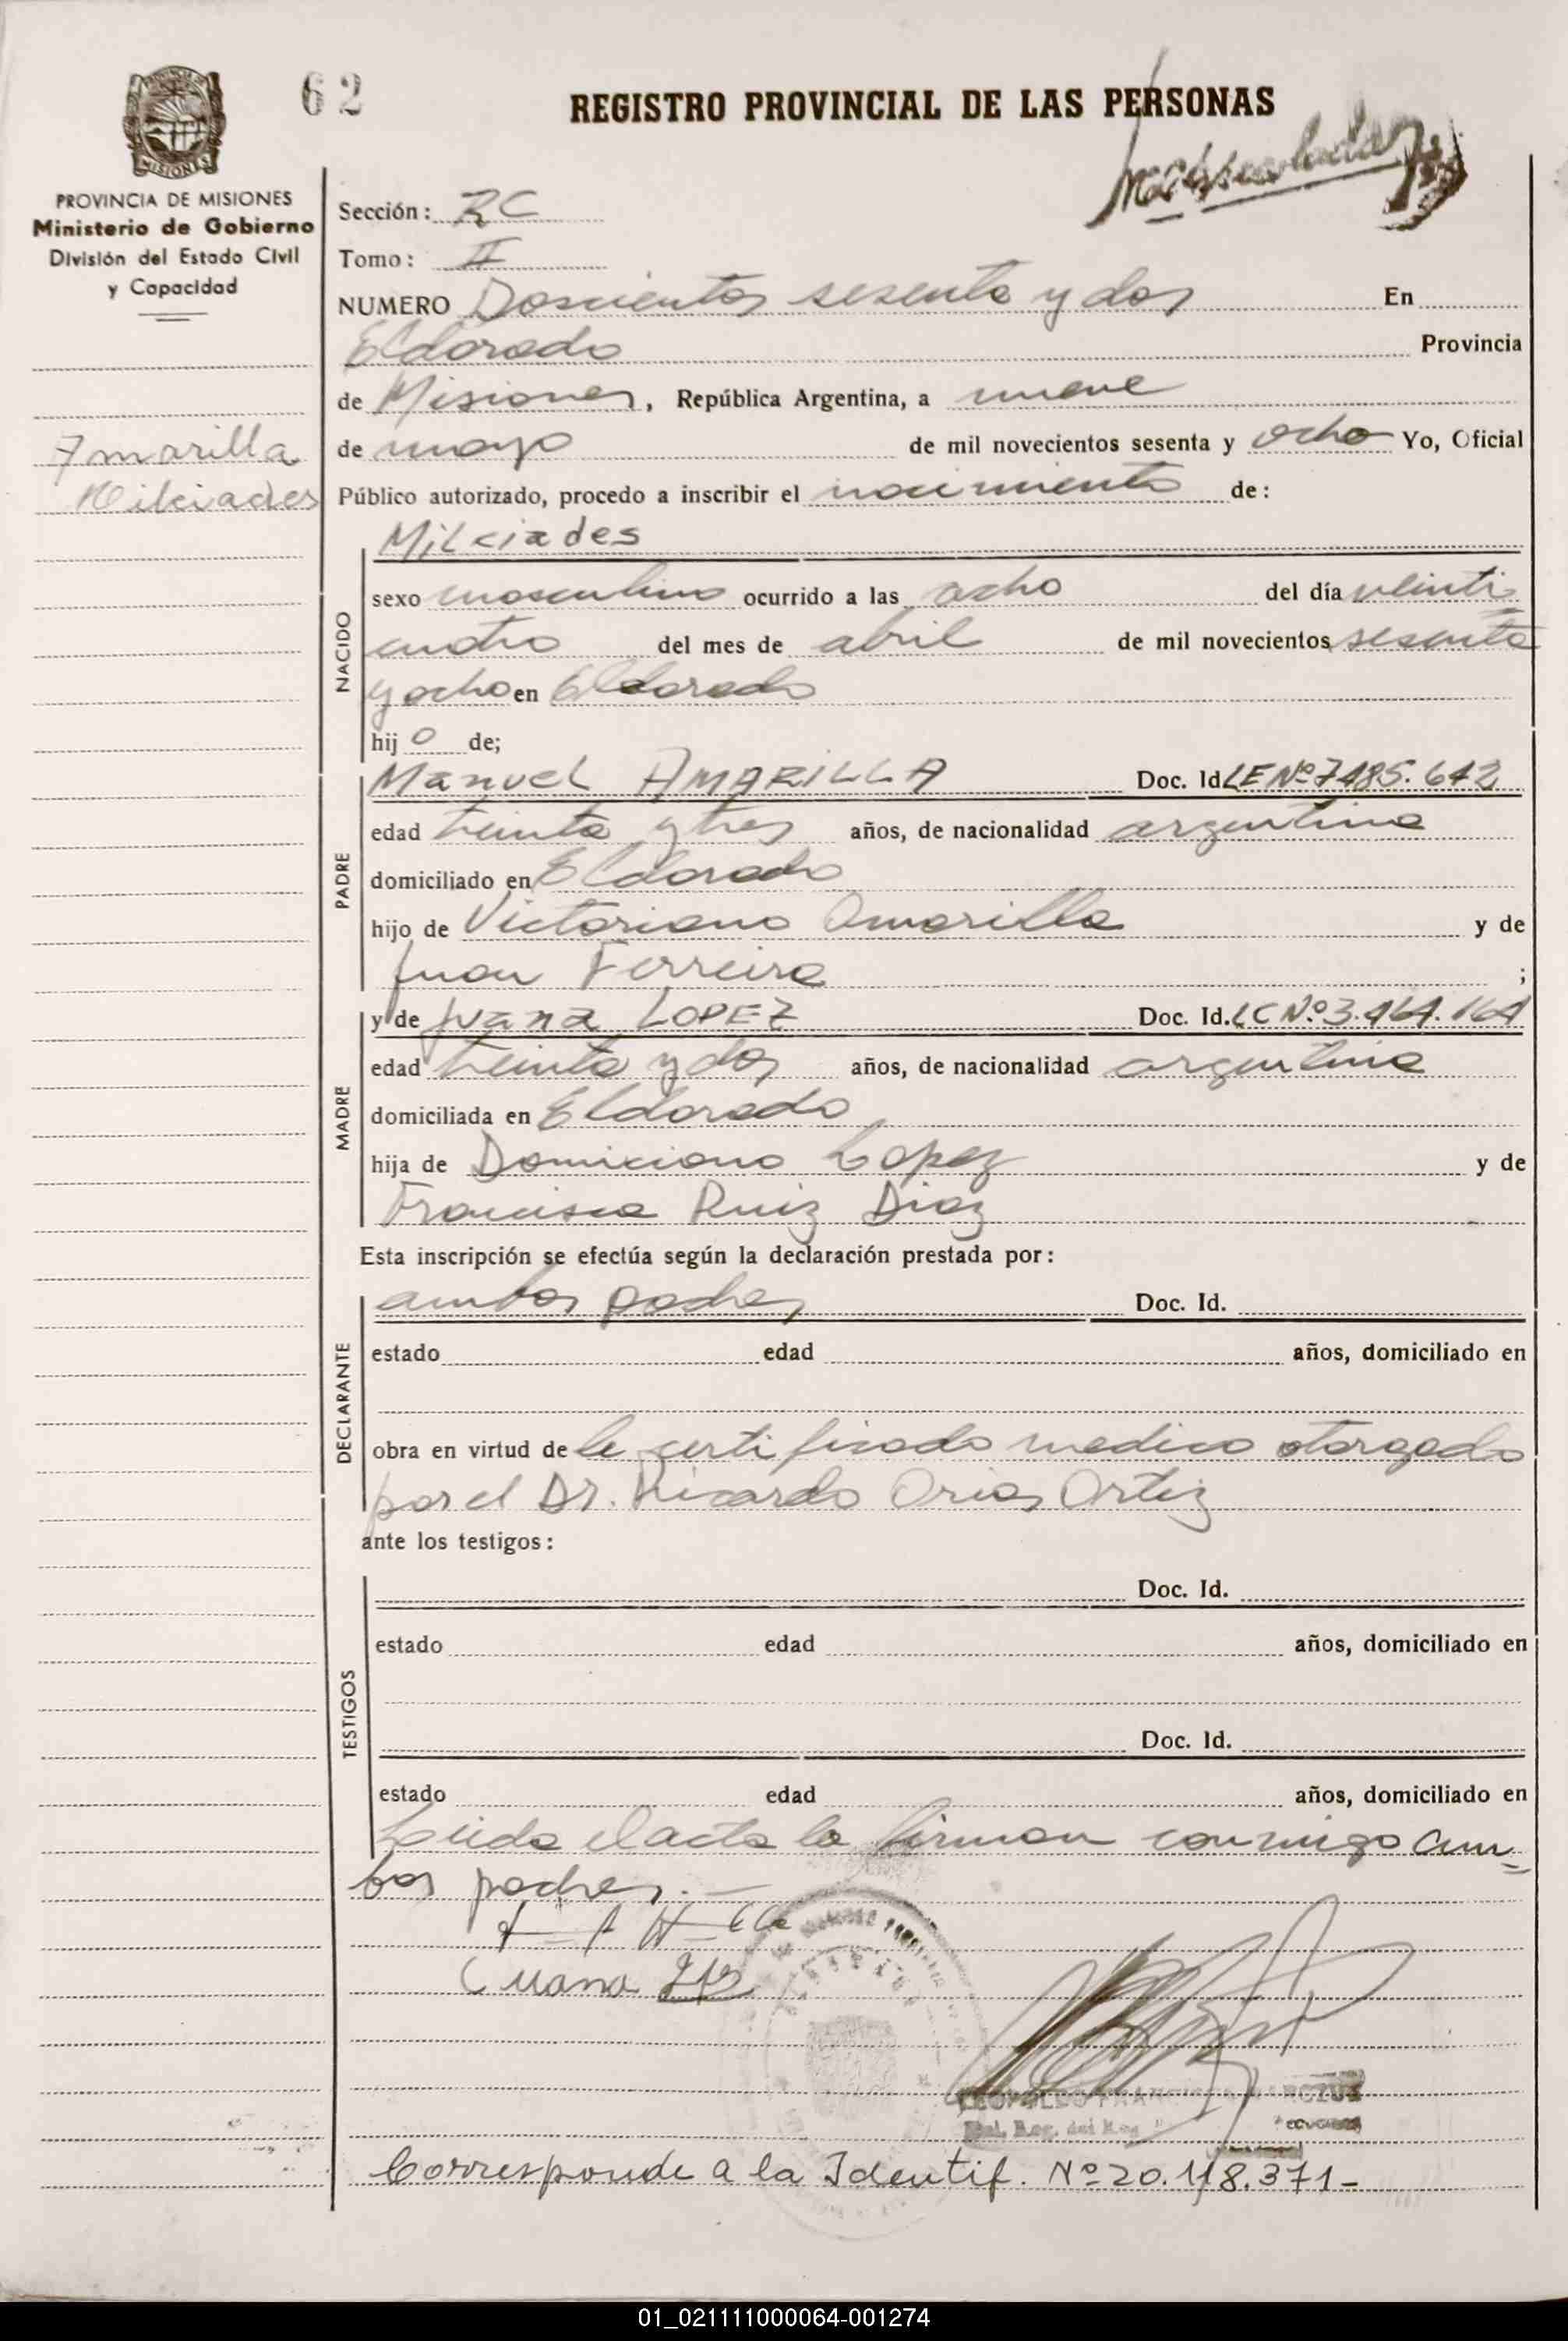 62
REGISTRO PROVINCIAL DE LAS PERSONAS
MISIONES
PROVINCIA DE MISIONES
Ministerio de Gobierno
División del Estado Civil
y Capacidad
Amarilla
Milciades
Sección:
Tomo: II
NUMERO Doscientos sesenta y dos En
Eldorado Provincia
de Misiones, República Argentina, a nueve
de mayo de mil novecientos sesenta y ocho Yo, Oficial
Público autorizado, procedo a inscribir el nacimiento de:
Milciades
NACIDO
sexo masculino ocurrido a las ocho del día veinti
cuatro del mes de abril de mil novecientos sesenta
y ocho en Eldorado
hijo de;
PADRE
Manuel AMARILLA Doc. Id. LE Nº 7485.642
edad treinta y tres años, de nacionalidad argentina
domiciliado en Eldorado
hijo de Victoriano Amarilla y de
Juan Ferreira ;
MADRE
y de Juana LOPEZ Doc. Id. LC Nº 3.464.164
edad treinta y dos años, de nacionalidad argentina
domiciliada en Eldorado
hija de Domiciano Lopez y de
Francisca Ruiz Diaz
Esta inscripción se efectúa según la declaración prestada por:
DECLARANTE
ambos padres Doc. Id.
estado edad años, domiciliado en
obra en virtud de le certificado medico otorgado
por el Dr. Ricardo Ortiz
ante los testigos:
TESTIGOS
Doc. Id.
estado edad años, domiciliado en
Doc. Id.
estado edad años, domiciliado en
Leida el acta la firman conmigo am-
bos padres.—
LEOPOLDO
Corresponde a la Identif. Nº 20.118.371-
01_021111000064-001274